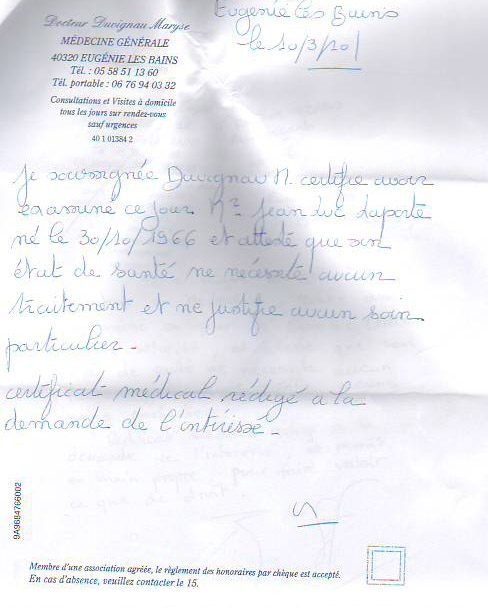 Docteur Duvignau Maryse
MÉDECINE GÉNÉRALE
40320 EUGÉNIE LES BAINS
Tél. : 05 58 51 13 60
Tél. portable : 06 76 94 03 32
Consultations et Visites à domicile
tous les jours sur rendez-vous
sauf urgences
40 1 01384 2
Eugénie les Bains
le 10/3/201
je soussignée Duvignau M. certifie avoir
examiné ce jour Mr Jean Luc Laporte
né le 30/10/1966 et atteste que son
état de santé ne nécessite aucun
traitement et ne justifie aucun soin
particulier.
certificat médical rédigé a la
demande de l'intéressé.
9A9684766002
Membre d'une association agréée, le règlement des honoraires par chèque est accepté.
En cas d'absence, veuillez contacter le 15.